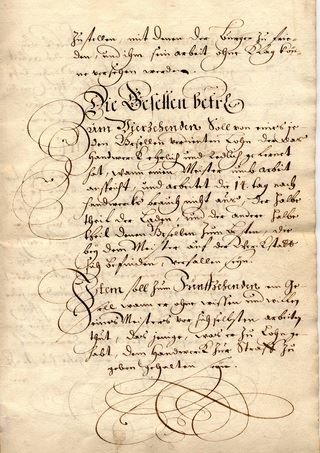 zu stellen, mit denen der Burger zu frie-
den, und ihm sein arbeit ohne Klag kön-
ne versehen werden.
Die Gesellen betr:
Zum Vierzehenden Soll von eines je
den Gesellen verdienten Lohn der das
Handwerk ehrlich und redlich gelernet
hat, wann einen Meister umb arbeit
anspricht, und arbeitet die 14. tag nach
Handwercks brauch nicht auß. Der halbe
theil der Laden, und der andere halbe
theil denen Gesellen
bey dem Meister auf der Werckstatt
sich befinden verfallen seyn.
Item soll zum Funftzehenden ein Ge-
sell wann er ohne wissen und willen
seines Meisters vor sich selbsten arbeiten
thut, das jenige, was er zu Lohn ge-
habt, dem Handwerck zur Straff zu
geben gehalten seyn.